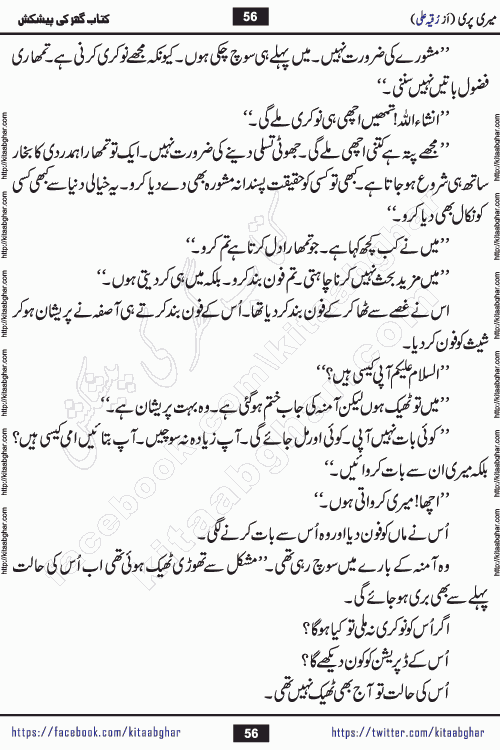 میری پری (از رقیہ علی) 56 کتاب گھر کی پیشکش
’’مشورے کی ضرورت نہیں۔ میں پہلے ہی سوچ چکی ہوں۔ کیونکہ مجھے نوکری کرنی ہے۔ تمھاری
فضول باتیں نہیں سننی۔‘‘
’’انشاء اللہ! تمھیں اچھی ہی نوکری ملے گی۔‘‘
’’مجھے پتہ ہے کتنی اچھی ملے گی۔ جھوٹی تسلی دینے کی ضرورت نہیں۔ ایک تو تمھارا ہمدردی کا بخار
ساتھ ہی شروع ہو جاتا ہے۔ کبھی تو کسی کو حقیقت پسندانہ مشورہ بھی دے دیا کرو۔ یہ خیالی دنیا سے کبھی کسی
کو نکال بھی دیا کرو۔‘‘
’’میں نے کب کچھ کہا ہے۔ جو تمھارا دل کرتا ہے تم کرو۔‘‘
’’میں مزید بحث نہیں کرنا چاہتی۔ تم فون بند کرو۔ بلکہ میں ہی کر دیتی ہوں۔‘‘
اس نے غصے سے ٹھا کر کے فون بند کر دیا تھا۔ اُس کے فون بند کرتے ہی آصفہ نے پریشان ہو کر
شیث کو فون کر دیا۔
’’السلام علیکم آپی کیسی ہیں؟‘‘
’’میں تو ٹھیک ہوں لیکن آمنہ کی جاب ختم ہو گئی ہے۔ وہ بہت پریشان ہے۔‘‘
’’کوئی بات نہیں آپی۔ کوئی اور مل جائے گی۔ آپ زیادہ نہ سوچیں۔ آپ بتائیں امی کیسی ہیں؟
بلکہ میری ان سے بات کروائیں۔‘‘
’’اچھا! میری کرواتی ہوں۔‘‘
اُس نے ماں کو فون دیا اور وہ اُس سے بات کرنے لگی۔
وہ آمنہ کے بارے میں سوچ رہی تھی۔ ’’مشکل سے تھوڑی ٹھیک ہوئی تھی اب اُس کی حالت
پہلے سے بھی بری ہو جائے گی۔
اگر اُس کو نوکری نہ ملی تو کیا ہو گا؟
اُس کے ڈپریشن کو کون دیکھے گا؟
اُس کی حالت تو آج بھی ٹھیک نہیں تھی۔
http://kitaabghar.com http://kitaabghar.com http://kitaabghar.com http://kitaabghar.com http://kitaabghar.com http://kitaabghar.com
http://kitaabghar.com http://kitaabghar.com http://kitaabghar.com http://kitaabghar.com http://kitaabghar.com http://kitaabghar.com
کتاب گھر کی پیشکش
facebook.com/kitaabghar
kitaabghar.com
https://facebook.com/kitaabghar 56 https://twitter.com/kitaabghar